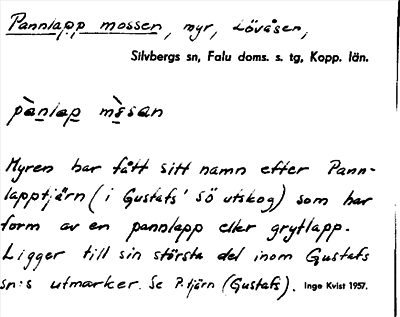 Pannlapp mossen, myr, Lövåsen,
Silvbergs sn, Falu doms. s. tg, Kopp. län.
pànlap mòsan
Myren har fått sitt namn efter Pann-
lapptjärn (i Gustafs' sö utskog) som har
form av en pannlapp eller grytlapp.
Ligger till sin största del inom Gustafs
sn:s utmarker. Se P.tjärn (Gustafs). Inge Kvist 1957.